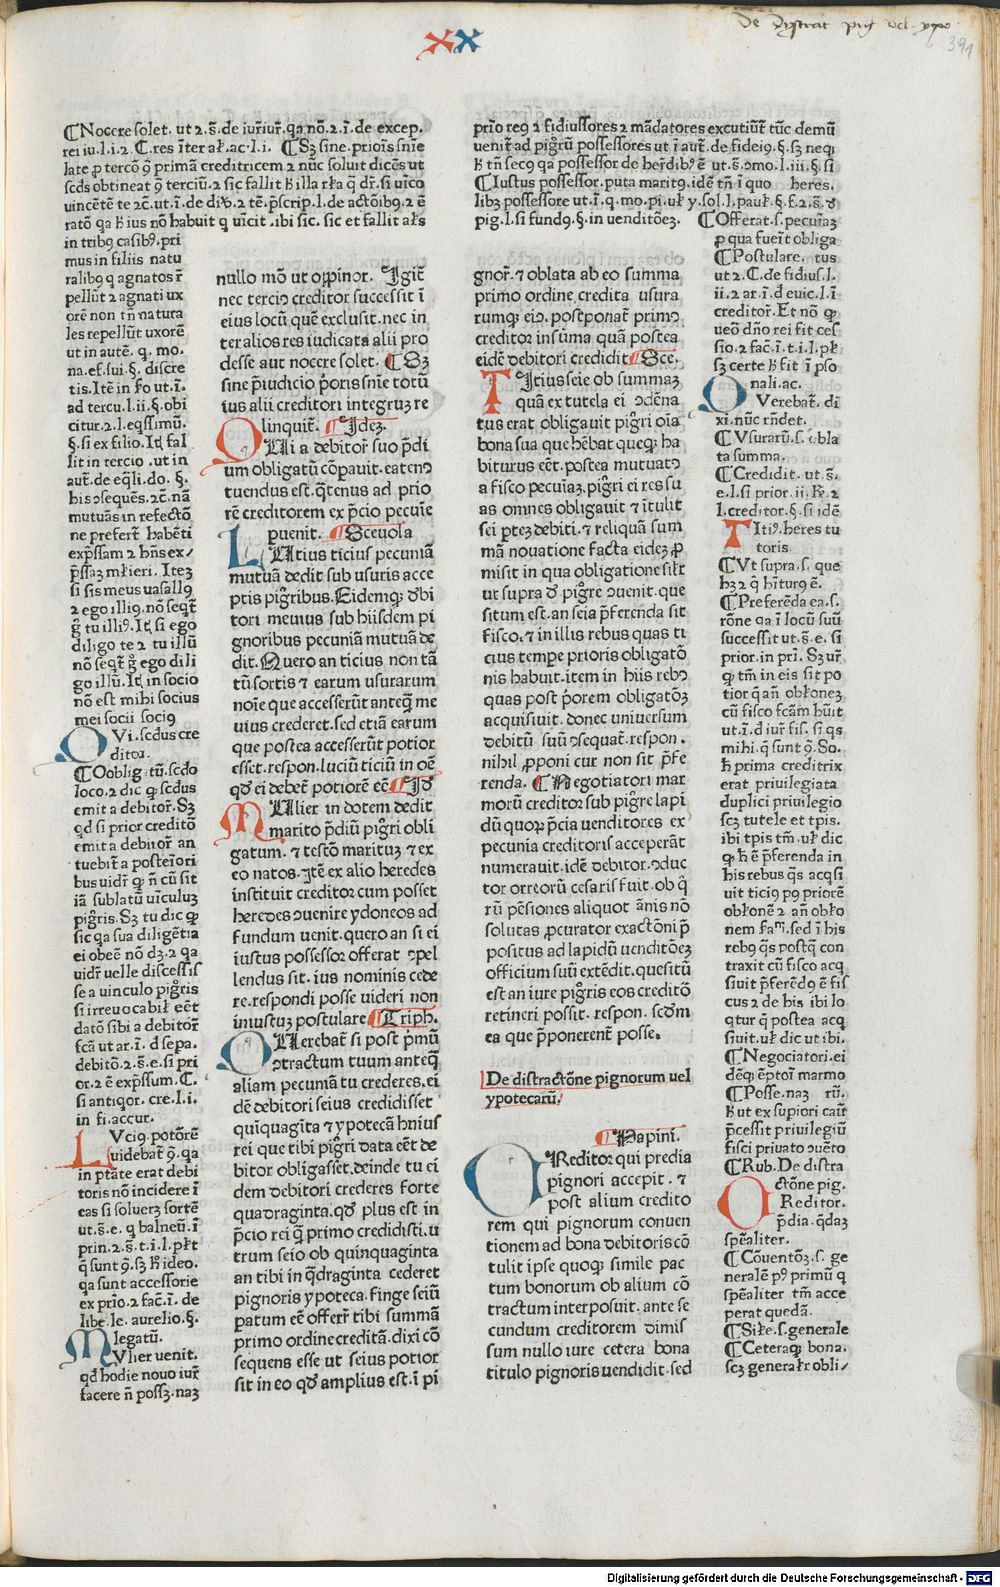 De dystrat pig vel ypo
xx
391
⸿Nocere solet. ut 2.s̄.de iur̄iur̄.qa nō.2.ī.de excep.
rei iu.l.i.2.C.res īter al̄.ac.l.i. ⸿Sꝫ sine.prioīs sn̄ie
late ꝑ tercō ꝯ primā creditricem 2 nūc soluit dicēs ut
scds obtineat ꝯ terciū.2 sic fallit h̄ illa rl̄a q̄ dr̄.si uīco
uincētē te 2c̄.ut.ī.de diū.2 tē.p̄scrip.l.de actōibꝯ.2 ē
ratō qa h̄ ius nō habuit q uīcit.ibi sic. sic et fallit al̄s
in tribꝯ casibꝯ.pri
mus in filiis natu
ralibꝯ q agnatos r̄
pellūt 2 agnati ux
orē non tn̄ natura
les repellūt uxorē
ut in autē. q. mo.
na.ef.sui.§. discre
tis.Itē in fo ut.ī.
ad tercu.l.ii.§.obi
citur.2.l.eqssimū.
§.si ex filio.Itꝫ fal
lit in tercio .ut in
aut̄.de eqli.do. §.
his ↄsequēs.2c̄.nā
mutuās in refectō
ne prefert̄ habēti
exp̄ssam 2 hn̄s ex/
p̄ssaꝫ ml̄ieri. Iteꝫ
si sis meus uasallꝯ
2 ego illiꝯ.nō seqt̄
ḡ tu illiꝯ.Itꝫ si ego
diligo te 2 tu illū
nō seqt̄ ḡ ego dili
go illū.Itꝫ in socio
nō est mihi socius
mei socii sociꝯ
QVi.scdus cre
ditoꝛ.
⸿Oblig tū.scdo
loco.2 dic ꝙ scdus
emit a debitor̄.Sꝫ
qd si prior creditō
emit a debitor̄ an
tuebit̄ a posterīori
bus uidr̄ ꝙ n̄ cū sit
iā sublatū uīculuꝫ
pigr̄is.Sꝫ tu dic ꝙ
sic qa sua diligētīa
ei obeē nō dꝫ.2 qa
uidr̄ uelle discessis
se a uinculo pigr̄is
si irreuocabil̄ eēt
datō sibi a debitor̄
fcā ut ar.ī. d sepa.
debitō.2.s̄.e.si pri
or.2 ē exp̄ssum.C.
si antiqor. cre.l.i.
in fi.accur.
LVciꝯ.potōrē
uidebat̄ ꝯ.qa
in ptāte erat debi
toris nō incidere ī
eas si soluerꝫ sortē
ut.s̄.e. q balneū.ī
prin.2.s̄.t.i.l.pl̄t
q̄ sunt ꝯ.sꝫ h̄ ideo.
qa sunt accessorie
ex prio.2 fac̄.ī. de
libe.le. aurelio.§.
legatū.
MVlier uenit.
qd hodie nouo iur̄
facere n̄ possꝫ.naꝫ
nullo mō ut oppinor. Igit̄
nec terciꝯ creditor successit ī
eius locū quē exclusit.nec in
ter alios res iudicata alii pro
desse aut nocere solet. ⸿Sꝫ
sine p̄iudicio p̄oris sn̄ie totū
ius alii creditori integruꝫ re
linquit. ⸿Ideꝫ.
QUi a debitor̄ suo p̄di
um obligatū cōpauit.eatenꝯ
tuendus est.q̄tenus ad prio
rē creditorem ex p̄cio pecuīe
puenit. ⸿Sceuola
LUtius ticius pecuniā
mutuā dedit sub usuris acce
ptis pigr̄ibus.Eidemqꝫ d̄bi
tori meuius sub hiisdem pi
gnoribus pecuniā mutuā de
dit.Quero an ticius non tā
tū sortis ⁊ earum usurarum
noīe que accesserūt anteqꝫ me
uius crederet.sed etiā earum
que postea accesserūt potior
esset.respon.luciū ticiū in oē
qd ei debet̄ potiorē eē ⸿Id
MUlier in dotem dedit
marito p̄diū pigr̄i obli
gatum. ⁊ testō maritū ⁊ ex
eo natos.Itē ex alio heredes
instituit creditor cum posset
heredes ↄuenire ydoneos ad
fundum uenit.quero an si ei
iustus possessor offerat ꝯpel
lendus sit. ius nominis cede
re.respondi posse uideri non
iniustuꝫ postulare ⸿Triph.
QUerebat̄ si post p̄mū
ꝯtractum tuum anteqꝫ
aliam pecuniā tu crederes.ei
dē debitori seius credidisset
quīquagīta ⁊ ypotecā hꝰius
rei que tibi pigr̄i data eēt de
bitor obligasset.deinde tu ei
dem debitori crederes forte
quadraginta.qd plus est in
p̄cio rei q̄ primo credidisti.u
trum seio ob quinquaginta
an tibi in q̄draginta cederet
pignoris ypoteca.finge seiū
patum eē offerr̄ tibi summā
primo ordine creditā.dixi cō
sequens esse ut seius potior
sit in eo qd amplius est.ī pi
prīo reꝯ 2 fidiussores 2 mādatores excutiūt̄ tūc demū
uenit̄ ad pigr̄ū possessores ut ī aut̄.de fideiꝯ.§.sꝫ neqꝫ
h̄ tn̄ secꝯ qa possessor de her̄dibꝯ ē ut.s̄.ꝯmo.l.iii.§.si
⸿Iustus possessor.puta maritꝯ.idē tn̄ ī quo heres.
libꝫ possessore ut.ī.q.mo.pi.ul̄ y.sol.l.paul̄.§.f.2.s̄.d̄
pig.l.si fundꝯ.§.in uenditōeꝫ.
gnor̄.⁊ oblata ab eo summa
primo ordine credita usura
rumqꝫ eiꝯ.postponat̄ primꝯ
creditor insūma quā postea
eidē debitori credidit ⸿Sce.
TItius seie ob summaꝫ
quā ex tutela ei ↄdēna
tus erat obligauit pigr̄i oīa
bona sua que hēbat queqꝫ ha
biturus eēt.postea mutuatꝯ
a fisco pecuīaꝫ.pigr̄i ei res su
as omnes obligauit ⁊ ītulit
sei pteꝫ debiti.⁊ reliquā sum
mā nouatione facta eidēꝫ ꝑ
misit in qua obligatione sil̄r
ut supra d̄ pigr̄e ↄuenit.que
situm est.an seia p̄ferenda sit
fisco.⁊ in illis rebus quas ti
cius tempe prioris obligatō
nis habuit.item in hiis rebꝯ
quas post p̄orem obligatōꝫ
acquisiuit. donec uniuersum
debitū suū ↄsequat̄.respon.
nihil ꝓponi cur non sit p̄fe
renda. ⸿Negotiatori mar
morū creditor sub pigr̄e lapi
dū quorꝫ p̄cia uenditores ex
pecunia creditoris acceperāt
numerauit.idē debitor.ↄduc
tor orreorū cesaris fuit.ob q̄
rū pēsiones aliquot ānis nō
solutas ꝓcurator exactōni p̄
positus ad lapidū uenditōeꝫ
officium suū extēdit.quesitū
est an iure pigr̄is eos creditō
retineri possit.respon.scdm
ea que p̄ponerent̄ posse.
De distractōne pignorum uel
ypotecarū.
⸿Papini.
CReditor qui predia
pignori accepit. ⁊
post alium credito
rem qui pignorum conuen
tionem ad bona debitoris cō
tulit ipse quoqꝫ simile pac
tum bonorum ob alium cō
tractum interposuit.ante se
cundum creditorem dimis
sum nullo iure cetera bona
titulo pignoris uendidit.sed
⸿Offerat.s.pecuīaꝫ
ꝑ qua fuerīt obliga
⸿Postulare. tus
ut 2.C.de fidius.l.
ii.2 ar.ī.d̄ euic.l.ī
creditor̄.Et nō ꝙ
ueō dn̄o rei fit ces
sio.2 fac̄.ī.t.i.l.pl̄
sꝫ certe h̄ fit ī pso
nali.ac.
QVerebat̄. di
xi.nūc rn̄det.
⸿Vsurarū.s.obla
ta summa.
⸿Credidit. ut s̄.
e.l.si prior.ii.R̄.2
l.creditor.§.si idē
TItiꝯ.heres tu
toris
⸿Vt supra.s. que
hꝫ 2 q̄ hīturꝯ ē.
⸿Preferēda ea.s.
rōne qa ī locū suū
successit ut.s̄.e. si
prior.in prī.Sꝫ ur̄
ꝙ tm̄ in eis sit po
tior q̄ añ obl̄oneꝫ
cū fisco fcām hūit
ut.ī.d iur̄ fis. si qs
mihi.q̄ sunt ꝯ.So.
h̄ prima creditrix
erat priuilegiata
duplici priuilegio
scꝫ tutele et tpis.
ibi tpis tm̄.ul̄ dic
ꝙ h̄ ē p̄ferenda in
his rebus q̄s acq̄si
uit ticiꝯ pꝯ priorē
obl̄onē 2 añ obl̄o
nem fam̄.sed ī his
rebꝯ q̄s postꝙ con
traxit cū fisco acq
siuit p̄ferēdꝯ ē fis
cus 2 de his ibi lo
qtur q̄ postea acq
siuit.ul̄ dic ut ibi.
⸿Negociatori.ei
dēqꝫ ēptoī marmo
⸿Posse.naꝫ rū.
h̄ ut ex supiori caūr̄
p̄cessit priuilegiū
fisci priuato ↄuēto
⸿Rub.De distra
ctōne pig.
CReditor.
p̄dia.q̄daꝫ
spēaliter.
⸿Cōuentōꝫ.s. ge
neralē pꝯ primū q̄
spēaliter tm̄ acce
perat quedā.
⸿Sil̄e.s.generale
⸿Ceteraqꝫ bona.
scꝫ generalr̄ obli/
Digitalisierung gefördert durch die Deutsche Forschungsgemeinschaft - DFG